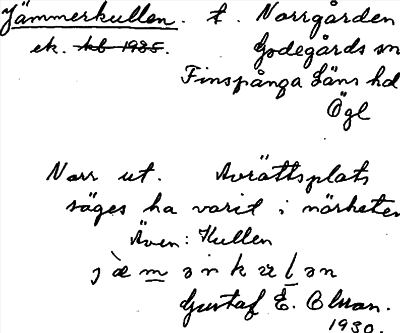 Jämmerkullen. t. Norrgården
ek. hb 1935. Godegårds sn
Finspånga Läns hd
Ögl
Norr ut. Avrättsplats
säges ha varit i närheten
Även: Kullen
Gustaf E. Olson.
1930.